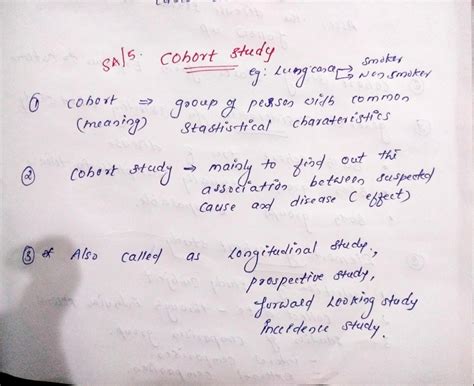 SA/5. Cohort study
eg: Lung case → smoker
→ Non smoker
① cohort ⇒ group of person with common
(meaning) stastistical charateristics
② cohort study → mainly to find out the
association between suspected
cause and disease (effect)
③ Also called as longitudinal study,
prospective study,
forward looking study
Inceldence study.